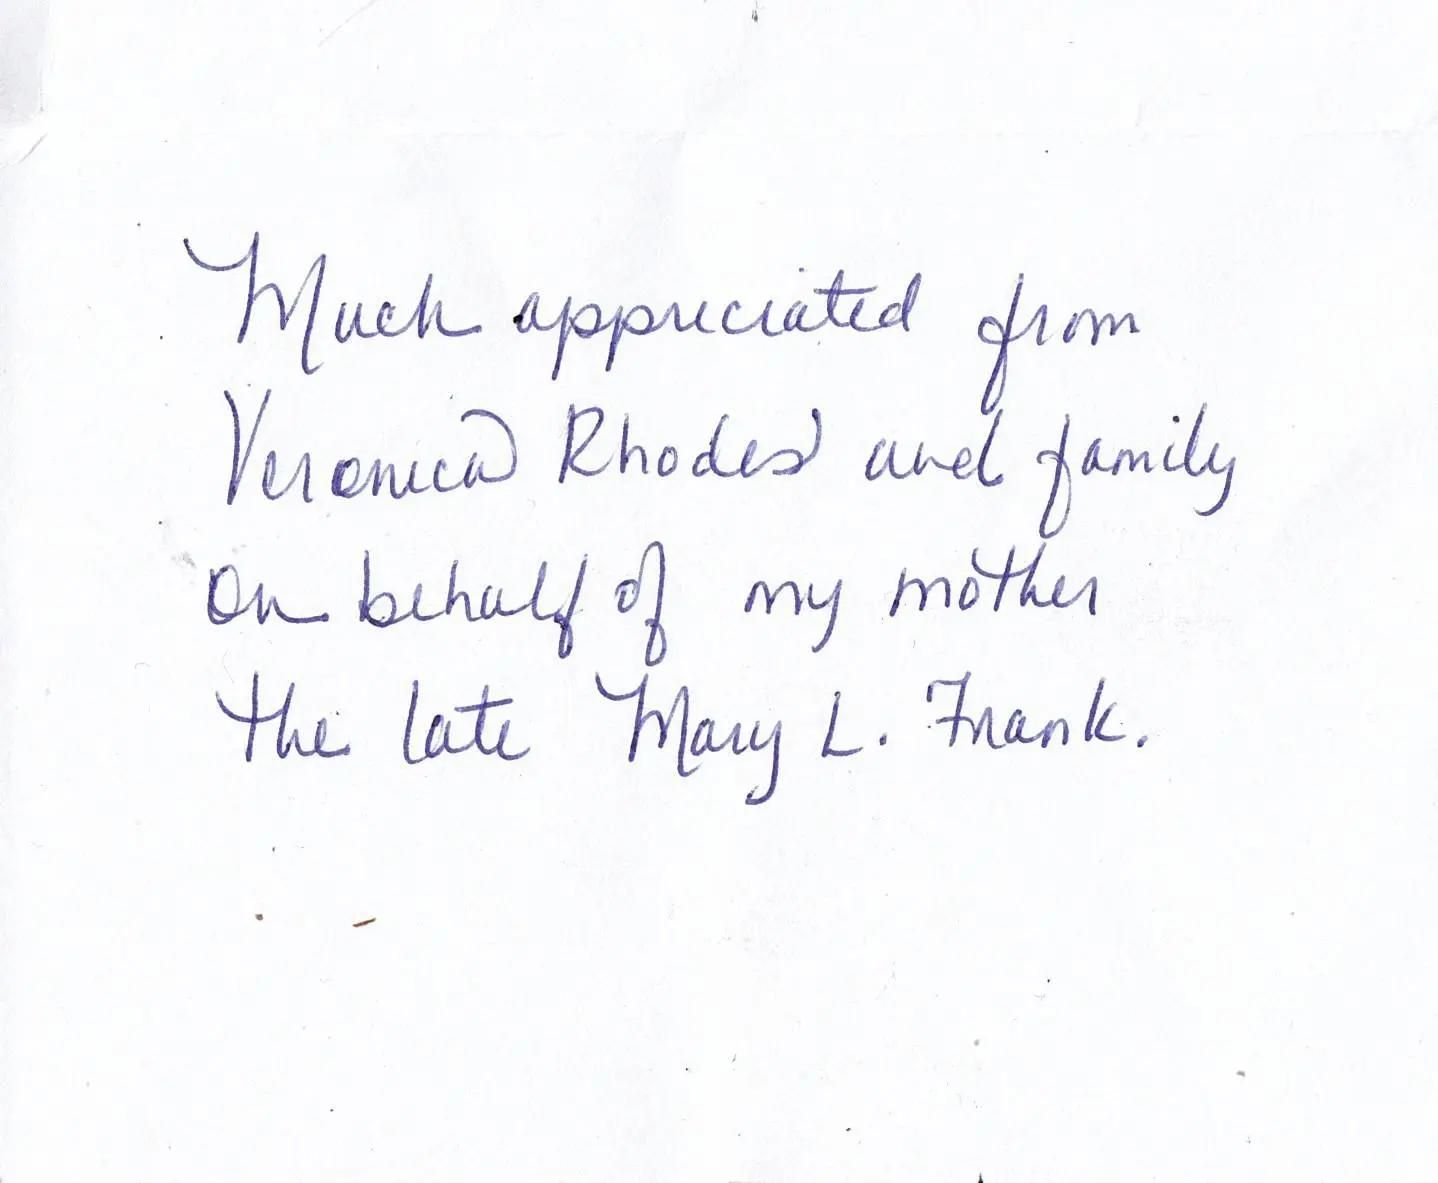 Much appreciated from
Veronica Rhodes and family
on behalf of my mother
the late Mary L. Frank.